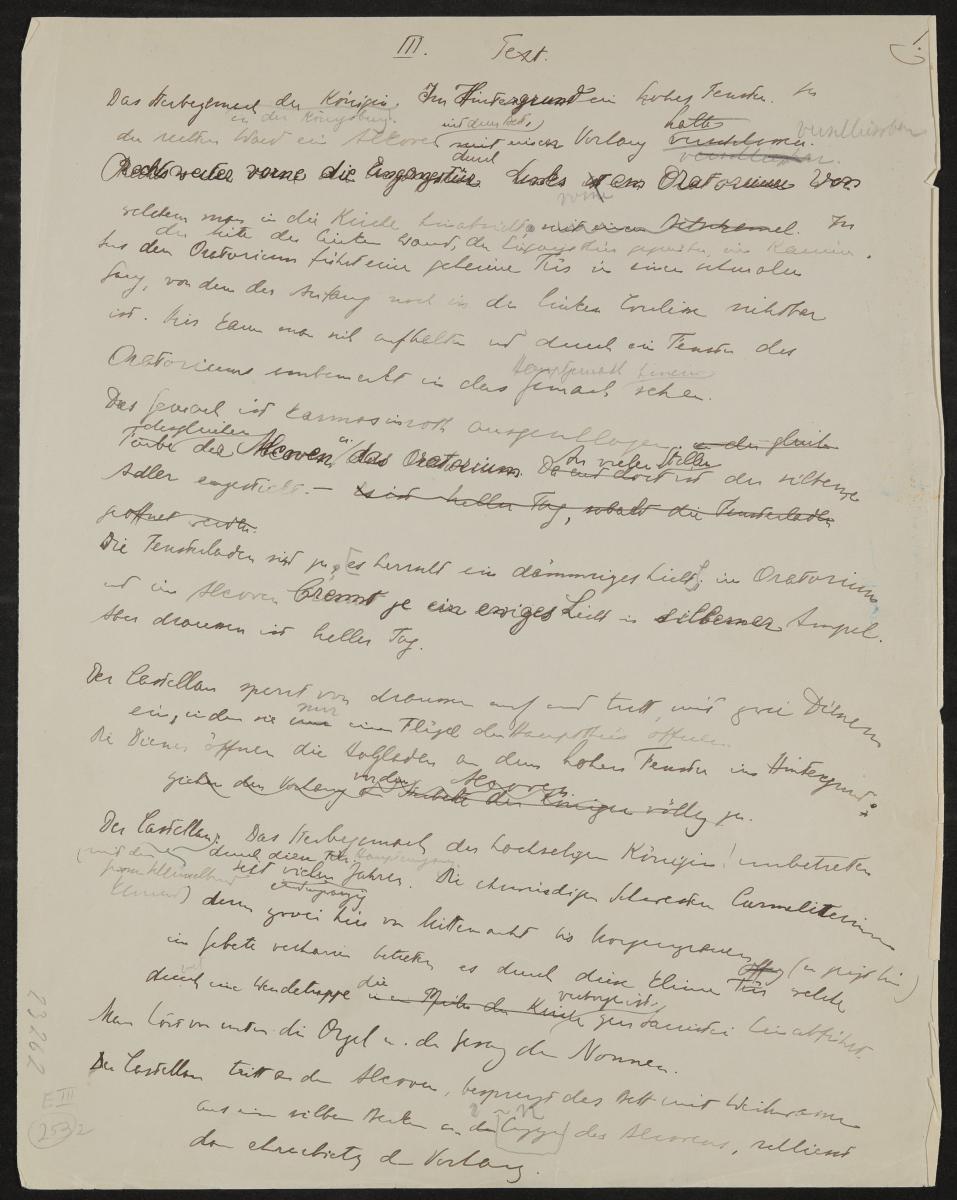 1.
III. Text.
Das Sterbegemach der Königin. Im Hintergrund ein hohes Fenster. In
in der Königsburg. mit dem Bett, halb verschliessbar
der rechten Wand ein Alcoven mit einem Vorhang verschlossen.
durch verschliessbar.
Rechts weiter vorne die Eingangstür. Links ist ein Oratorium von
vorne
welchem man in die Kirche hinabsieht, mit einem Betschemel. In
der Mitte der linken Wand, der Eingangsthür gegenüber, ein Kamin.
Aus dem Oratorium führt eine geheime Tür in einen schmalen
Gang, von dem der Anfang noch in der linken Coulisse sichtbar
ist. Hier kann man sich aufhalten und durch ein Fenster des
Oratoriums unbemerkt in das Gemach sehen.
Das Gemach ist karmoisinroth ausgeschlagen, in der gleichen
desgleichen u. An vielen Stellen
Farbe der Alcoven, das Oratorium. Da und dort ist der silberne
Adler eingestickt. – Es ist heller Tag, sobald die Fensterladen
geöffnet werden.
Die Fensterladen sind zu, es herrscht ein dämmriges Licht; im Oratorium
und im Alcoven brennt je ein ewiges Licht in silberner Ampel.
Aber draussen ist heller Tag.
Der Castellan sperrt von draussen auf und tritt, mit zwei Dienern
nur
ein, indem sie einen Flügel der Hauptthür öffnen.
Die Diener öffnen die Holzladen an dem hohen Fenster im Hintergrund:
vor dem Alcoven
ziehen den Vorhang am Bette der Königin völlig zu.
Der Castellan: Das Sterbegemach der hochseligen Königin! unbetreten
durch diese Tür
seit vielen Jahren. Die ehrwürdigen Schwestern Carmeliterinnen
deren zwei hier von Mitternacht bis Morgengrauen (er zeigt hin)
im Gebete verharren betreten es durch diese kleine Tür welche
die
durch eine Wendeltreppe in der Kirche hinabführt.
Man hört von unten die Orgel u. den Gesang der Nonnen.
Der Castellan tritt an den Alcoven, besprengt das Bett mit Weihwasser
aus einem silbern Becken an den des Alcovens, schliesst
dann ehrerbietig den Vorhang.
23262
E III
253 2